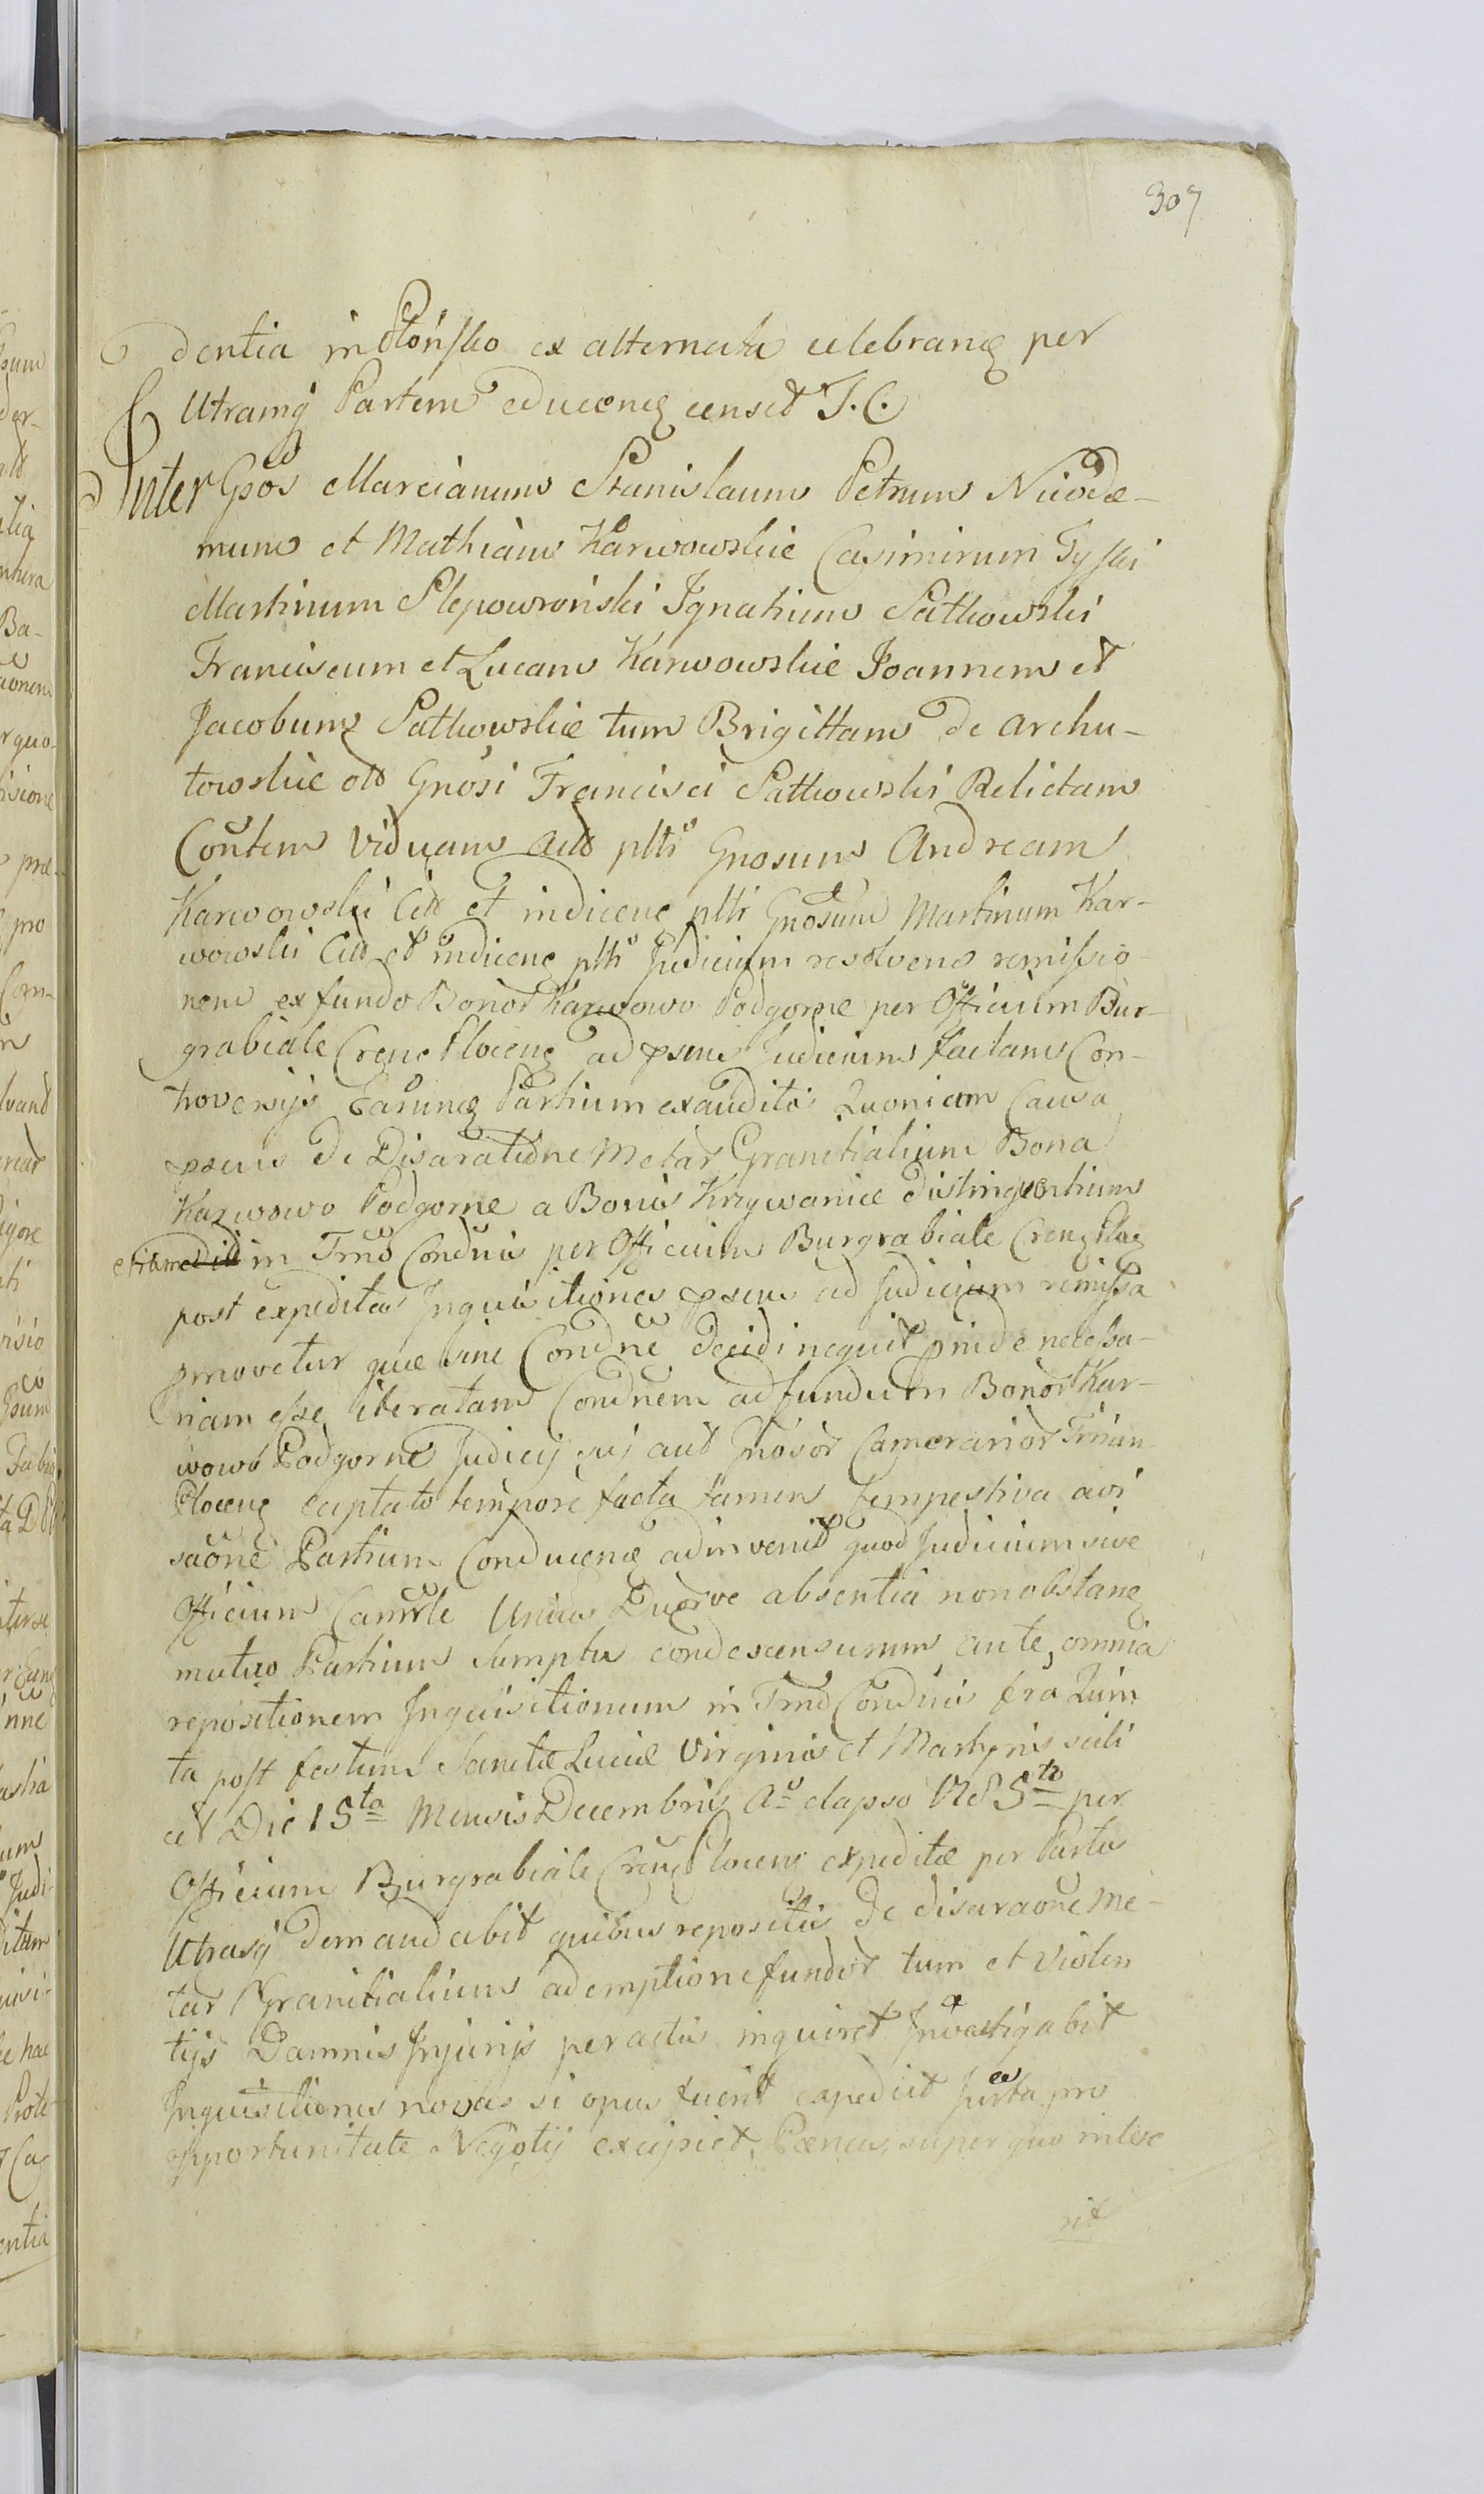 307
dentia in Płońsko ex alternata celebranȩ per
Utramq Partem educenȩ censet J. C.
Inter Gsos Marcianum Stanislaum Petrum Nicode-
mum et Mathiam Karwowskie Casimirum Tyski
Martinum Slepowroński Ignatium Sutkowski
Franciscum et Lucam Karwowskie Joannem et
Jacobum Sutkowskie tum Brigittam de Archu-
towskie olb Gnosi Francisci Sutkowski Relictam
Coñtem Viduam Actt pltt Gnosum Andream
Karwowski Citt et indicenȩ pltt Gnosum Martinum Kar-
wowski Citt et indicenȩ pltt Judicium resolvens remissio-
nem ex fundo Bonor Karwowo Podgorne per Officium Bur-
grabiale Crenȩ Plocenȩ ad psens Judicium factam Con-
troversijs Earunȩ Partium exaudits Quoniam Causa
psens de Disaratione Metar Granitialium Bona
Karwowo Podgorne a Bonis Krzywanice distinguentium
etiam in Trno Condnis per Officium Burgrabiale Crenȩ Plocȩ
post expeditas Inquisitiones psens ad Judicium remissa
pmovetur quæ sine Condne decidi nequit pnide necessa-
riam esse iteratam Condnem ad fundum Bonor Kar-
wowo Podgorne Judicij sui aut Gnosor Camerarior Trrium
Plocenȩ captato tempore facta tamen tempestiva avi
saone Partium Conducenȩ adinvenit quod Judicium sive
Officium Camrle Unius Duorve absentia non obstanȩ
mutuo Partium sumptu condescensurum ante omnia
repositionem Inquisitionum in Trno Condnis fra Quin
ta post festum Sanctæ Luciæ Virginis et Martyris scili
cet Die 15ta Mensis Decembris Ao elapso 1785to per
Officium Burgrabiale Crenȩ Plocenȩ expeditæ per Partes
Utrasq demandabit quibus repositis de disaraone Me-
tar Granitialium ademptione fundor tum et violen
tijs Damnis Injurijs peractis inquiret Investigabit
Inquisitiones novas si opus fuerit expediet Jurta pro
opportunitate Negotij excipiet, Pœnas, super quo intere
rit